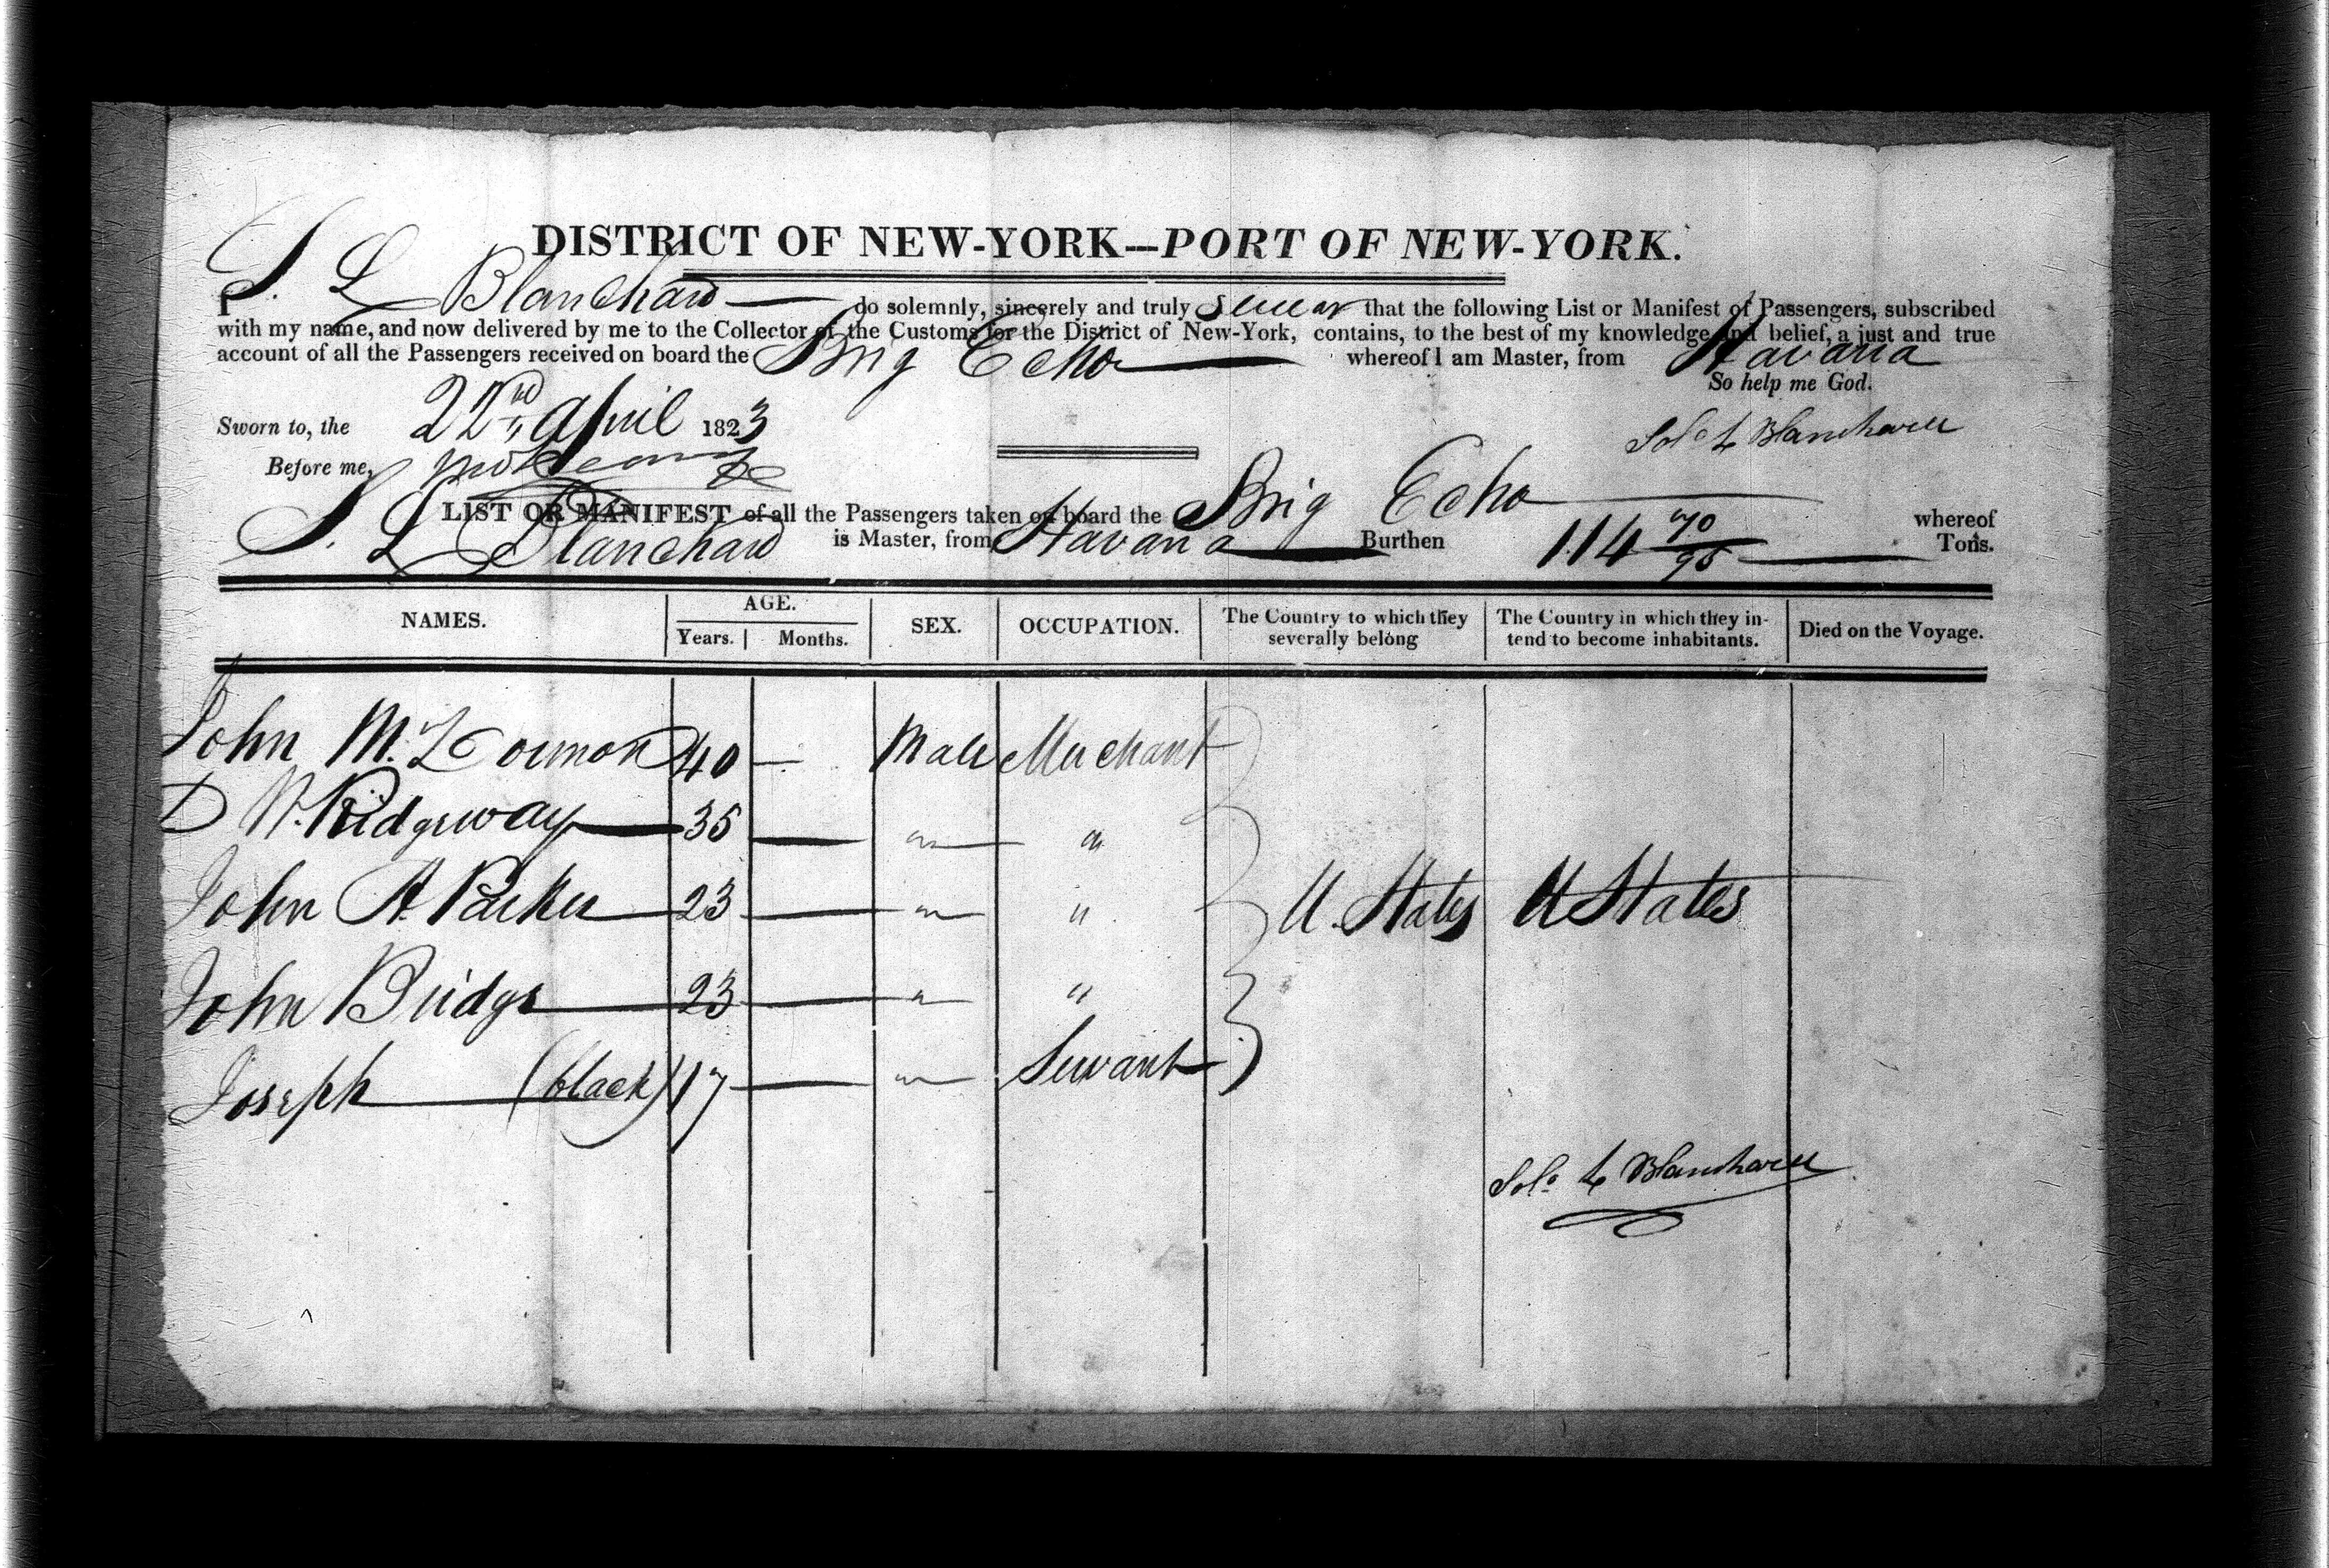 DISTRICT OF NEW-YORK--PORT OF NEW-YORK.
I S. L Blanchard do solemnly, sincerely and truly swear that the following List or Manifest of Passengers, subscribed
with my name, and now delivered by me to the Collector of the Customs for the District of New-York, contains, to the best of my knowledge and belief, a just and true
account of all the Passengers received on board the Brig Echo whereof I am Master, from Havana
So help me God.
Sworn to, the 22nd April 1823
Sol. L Blanchard
Before me,
LIST OR MANIFEST of all the Passengers taken on board the Brig Echo whereof
S. L Blanchard is Master, from Havana Burthen 114 70/95 Tons.
NAMES. AGE. SEX. OCCUPATION. The Country to which they severally belong The Country in which they in- tend to become inhabitants. Died on the Voyage.
Years. Months.
John M. 40 — Male Merchant
D N. Ridgeway 35 — " "
John A. Parker 23 — " " U. States U States
John Bridge 23 — " "
Joseph (black) 17 — " Servant
Sol. L Blanchard